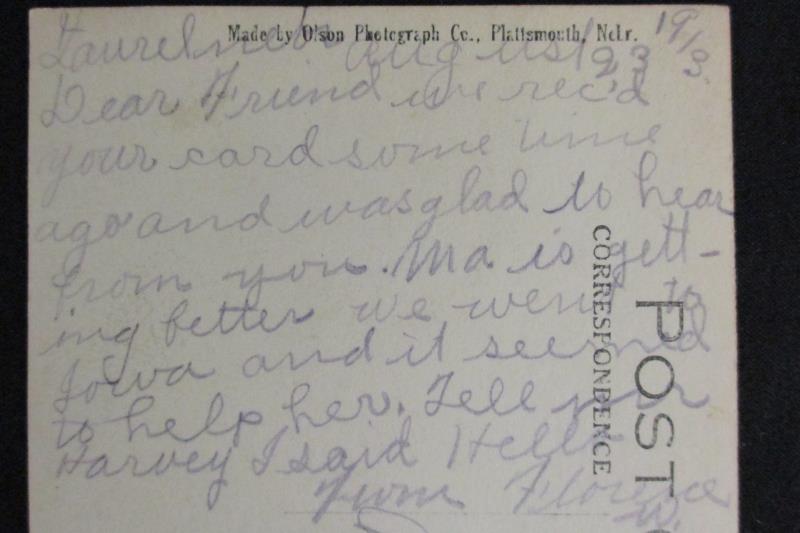 Made by Olson Photograph Co., Plattsmouth, Nebr.
Laurel nebr august 23 1913.
Dear Friend we rec'd
your card some time
ago and was glad to hear
from you. Ma is gett-
ing better we went to
Iowa and it seemed
to help her. Tell mr
Harvey I said Hello
From Florence
W.
CORRESPONDENCE
POST